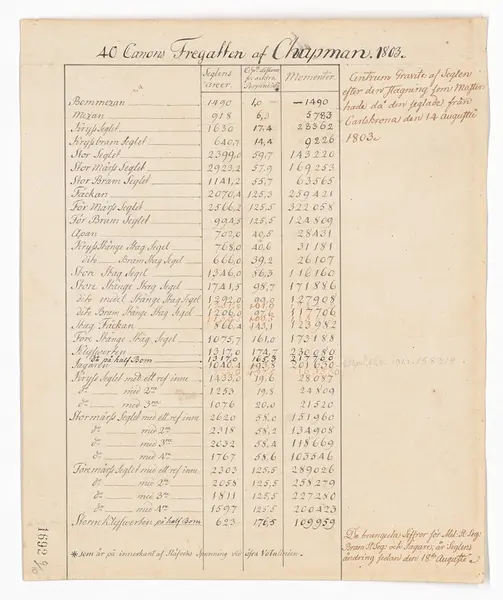 40 Canons Fregatten af Chapman. 1803.
Seglens Areer. Momenter.
Bommezan 1490 1,0 —1490
Mezan 918 6,3 5783
Kryss Seglet 1630 17,4 28362
Kryssbram Seglet 640,7 14,4 9226
Stor Seglet 2399,0 59,7 143220
Stor Märss Seglet 2923,2 57,9 169253
Stor Bram Seglet 1141,2 55,7 63565
Fäckan 2070,4 125,3 259421
För Märss Seglet 2566,2 125,5 322058
För Bram Seglet 994,5 125,5 124809
Apan 702,0 40,5 28431
Kryss Stänge Stag Segel 768,0 40,6 31181
dito Bram Stag Segel 666,0 39,2 26107
Stor Stag Segel 1346,0 86,3 116160
Stor Stänge Stag Segel 1741,5 98,7 171886
dito medel Stänge Stag Segel 1292,0 99,0 127908
dito Bram Stänge Stag Segel 1206,0 97,6 117706
Stag Fäckan 866,4 143,1 123982
Före Stänge Stag Segel 1075,7 161,0 173188
Klyfvorten 1317,0 174,7 230080
do på half Bom 1317,0 165,3 217700
Jagaren 1040,4 193,8 201630
Kryss Segel med ett ref inne 1433,0 19,6 28087
do — med 2ne 1253 19,8 24809
do — med 3ne 1076 20,0 21520
Stormärss Seglet med ett ref inne 2620 58,0 151960
do — med 2ne 2318 58,2 134908
do — med 3ne 2032 58,4 118669
do — med 4ra 1767 58,6 103546
Föremärss Seglet med ett ref inne 2303 125,5 289026
do — med 2ne 2058 125,5 258279
do — med 3ne 1811 125,5 227280
do — med 4ra 1597 125,5 200423
Storm Klyfvorten på half Bom 623 176,5 109959
Centrum Gravite af Seglen
efter den Tagning som Master
hade då den seglade från
Carlskrona den 14 Augusti
1803.
Bram St. Seg: och Jagare, är Seglens
ändring sedan den 18de Augusti
1692